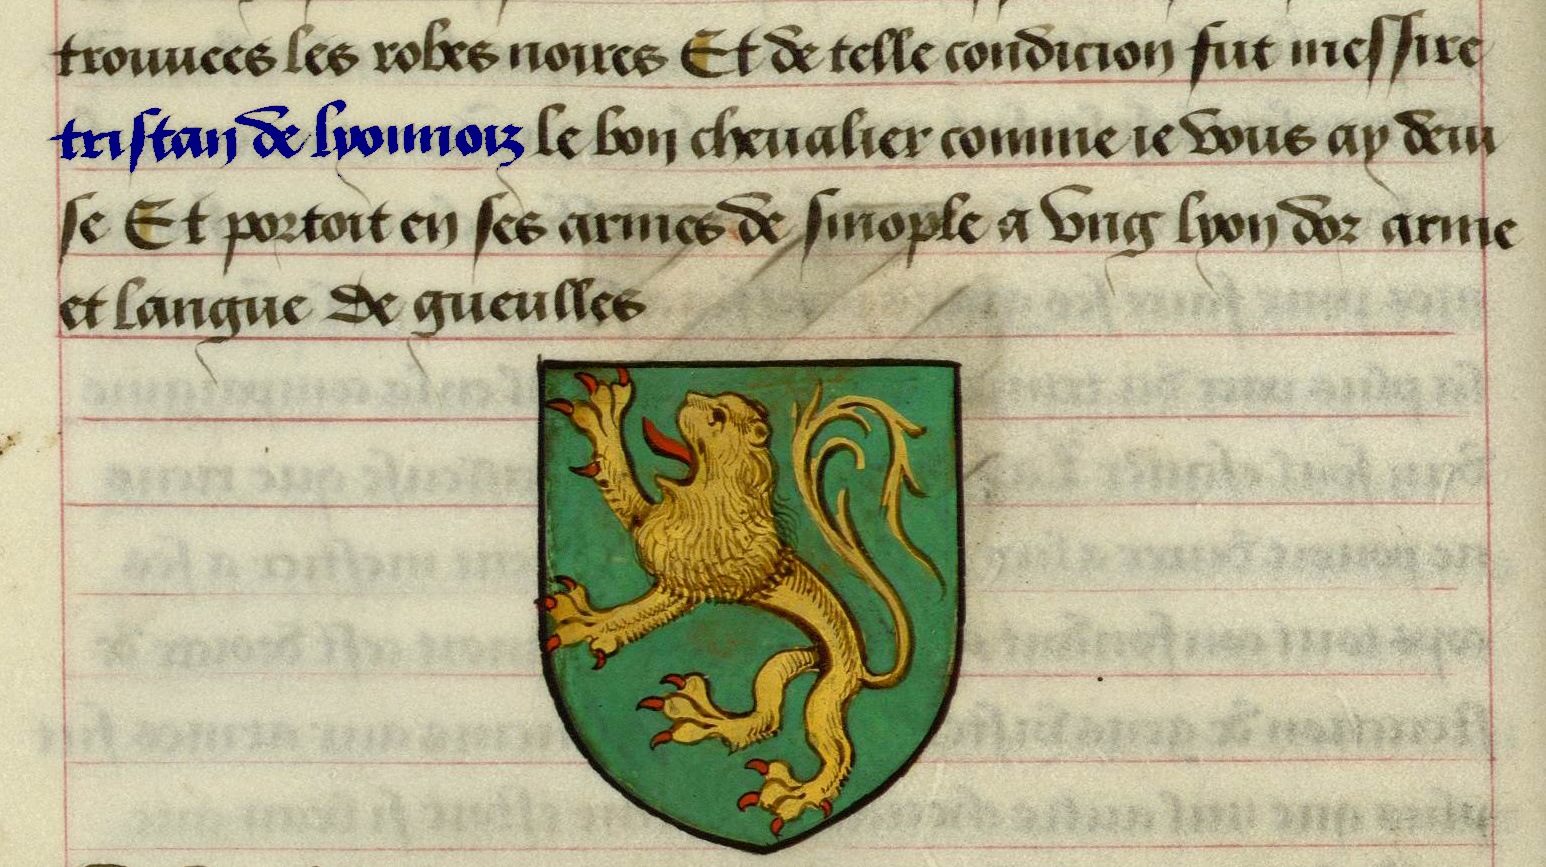 trouuees les robes noires Et de telle condicion fut messire
tristan de lyonnois le bon cheualier comme ie vous ay deui
se Et portoit en ses armes de sinople a vng lyon dor arme
et langue de gueulles